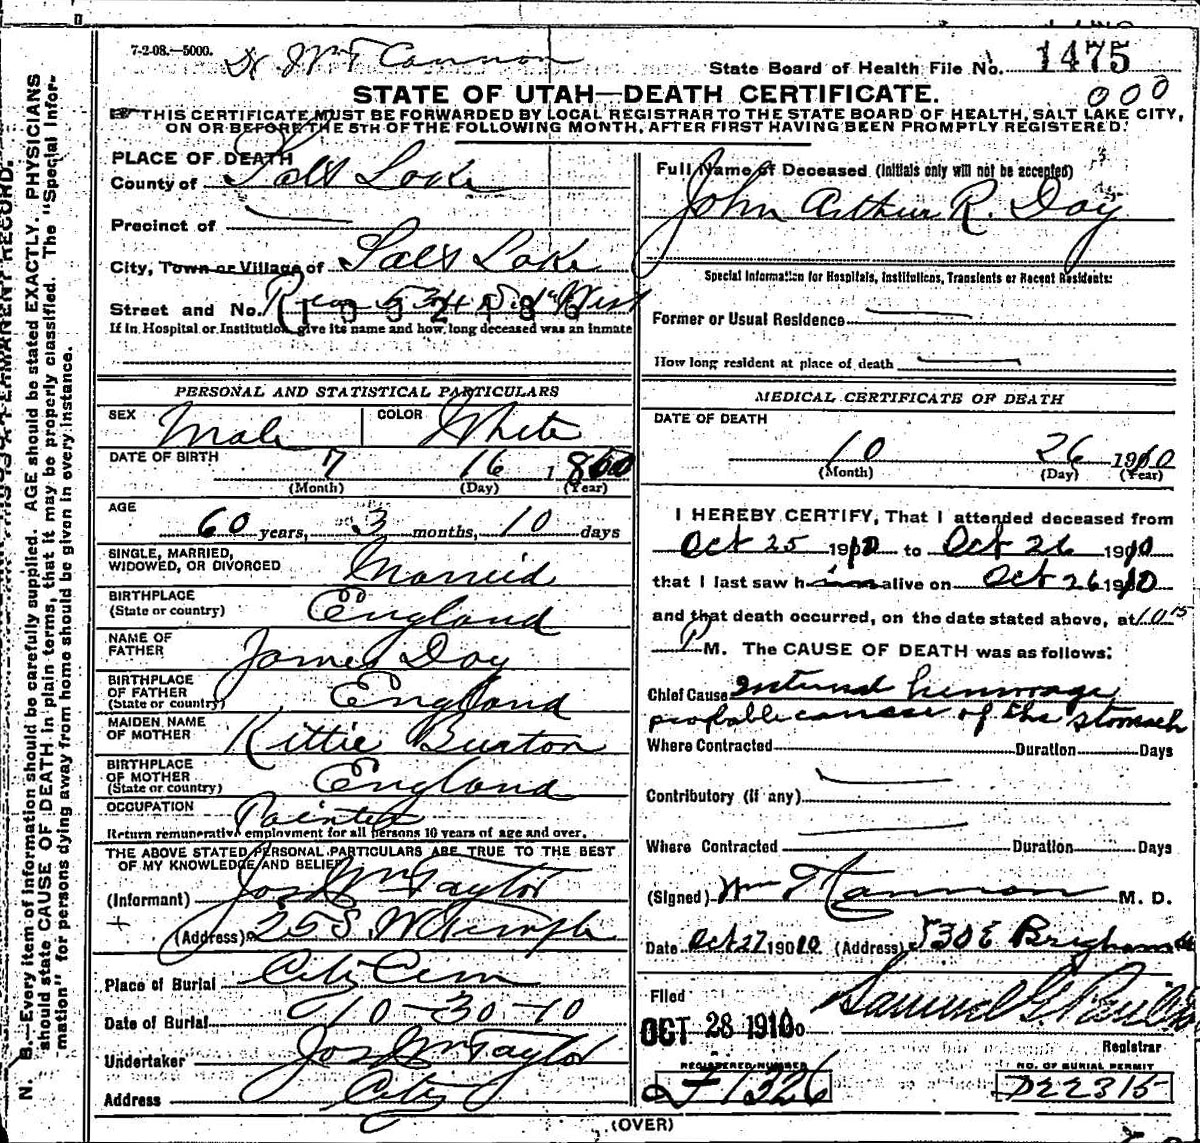 7-2-08.—5000.
Dr Wm T Cannon
State Board of Health File No. 1475
000
STATE OF UTAH—DEATH CERTIFICATE.
THIS CERTIFICATE MUST BE FORWARDED BY LOCAL REGISTRAR TO THE STATE BOARD OF HEALTH, SALT LAKE CITY,
ON OR BEFORE THE 5TH OF THE FOLLOWING MONTH, AFTER FIRST HAVING BEEN PROMPTLY REGISTERED.
PLACE OF DEATH
County of Salt Lake
Precinct of
City, Town or Village of Salt Lake
Street and No. Rear 534 S. 1st West
1032486
If in Hospital or Institution, give its name and how long deceased was an inmate
Full Name of Deceased (Initials only will not be accepted)
John Arthur R. Day
Special Information for Hospitals, Institutions, Transients or Recent Residents:
Former or Usual Residence
How long resident at place of death
PERSONAL AND STATISTICAL PARTICULARS
SEX Male
COLOR White
DATE OF BIRTH 7 16 1850
(Month) (Day) (Year)
AGE
60 years, 3 months, 10 days
SINGLE, MARRIED,
WIDOWED, OR DIVORCED Married
BIRTHPLACE
(State or country) England
NAME OF
FATHER James Day
BIRTHPLACE
OF FATHER
(State or country) England
MAIDEN NAME
OF MOTHER Kittie Burton
BIRTHPLACE
OF MOTHER
(State or country) England
OCCUPATION Painter
Return remunerative employment for all persons 10 years of age and over.
THE ABOVE STATED PERSONAL PARTICULARS ARE TRUE TO THE BEST
OF MY KNOWLEDGE AND BELIEF
(Informant) Jos Wm Taylor
(Address) 25 S. W Temple
Place of Burial City Cem
Date of Burial 10-30-10
Undertaker Jos Wm Taylor
Address City
MEDICAL CERTIFICATE OF DEATH
DATE OF DEATH
10 26 1910
(Month) (Day) (Year)
I HEREBY CERTIFY, That I attended deceased from
Oct 25 1910 to Oct 26 1910
that I last saw him alive on Oct 26 1910
and that death occurred, on the date stated above, at 10 15
P M. The CAUSE OF DEATH was as follows:
Chief Cause Internal hemorage
probable cancer of the stomach
Where Contracted Duration Days
Contributory (if any)
Where Contracted Duration Days
(Signed) Wm T Cannon M. D.
Date Oct 27 1910 (Address) 530 E Brigham St
Filed
OCT 28 1910
Samuel G. Paul
Registrar
REGISTERED NUMBER
1326
NO. OF BURIAL PERMIT
D22315
(OVER)
N. B.—Every item of information should be carefully supplied. AGE should be stated EXACTLY. PHYSICIANS
should state CAUSE OF DEATH in plain terms, that it may be properly classified. The "Special Infor-
mation" for persons dying away from home should be given in every instance.